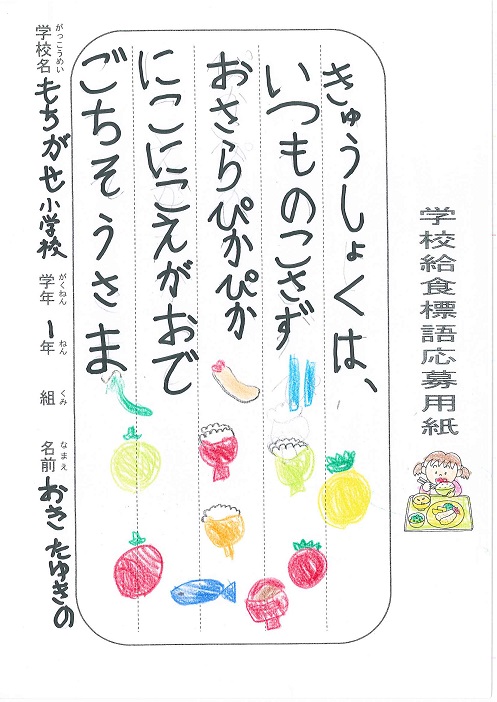 学校給食標語応募用紙
きゅうしょくは、
いつものこさず
おさらぴかぴか
にこにこえがおで
ごちそうさま
がっこうめい
学校名 もちがせ小学校
がくねん
学年 1年
ねん
組
くみ
なまえ
名前 おきたゆきの